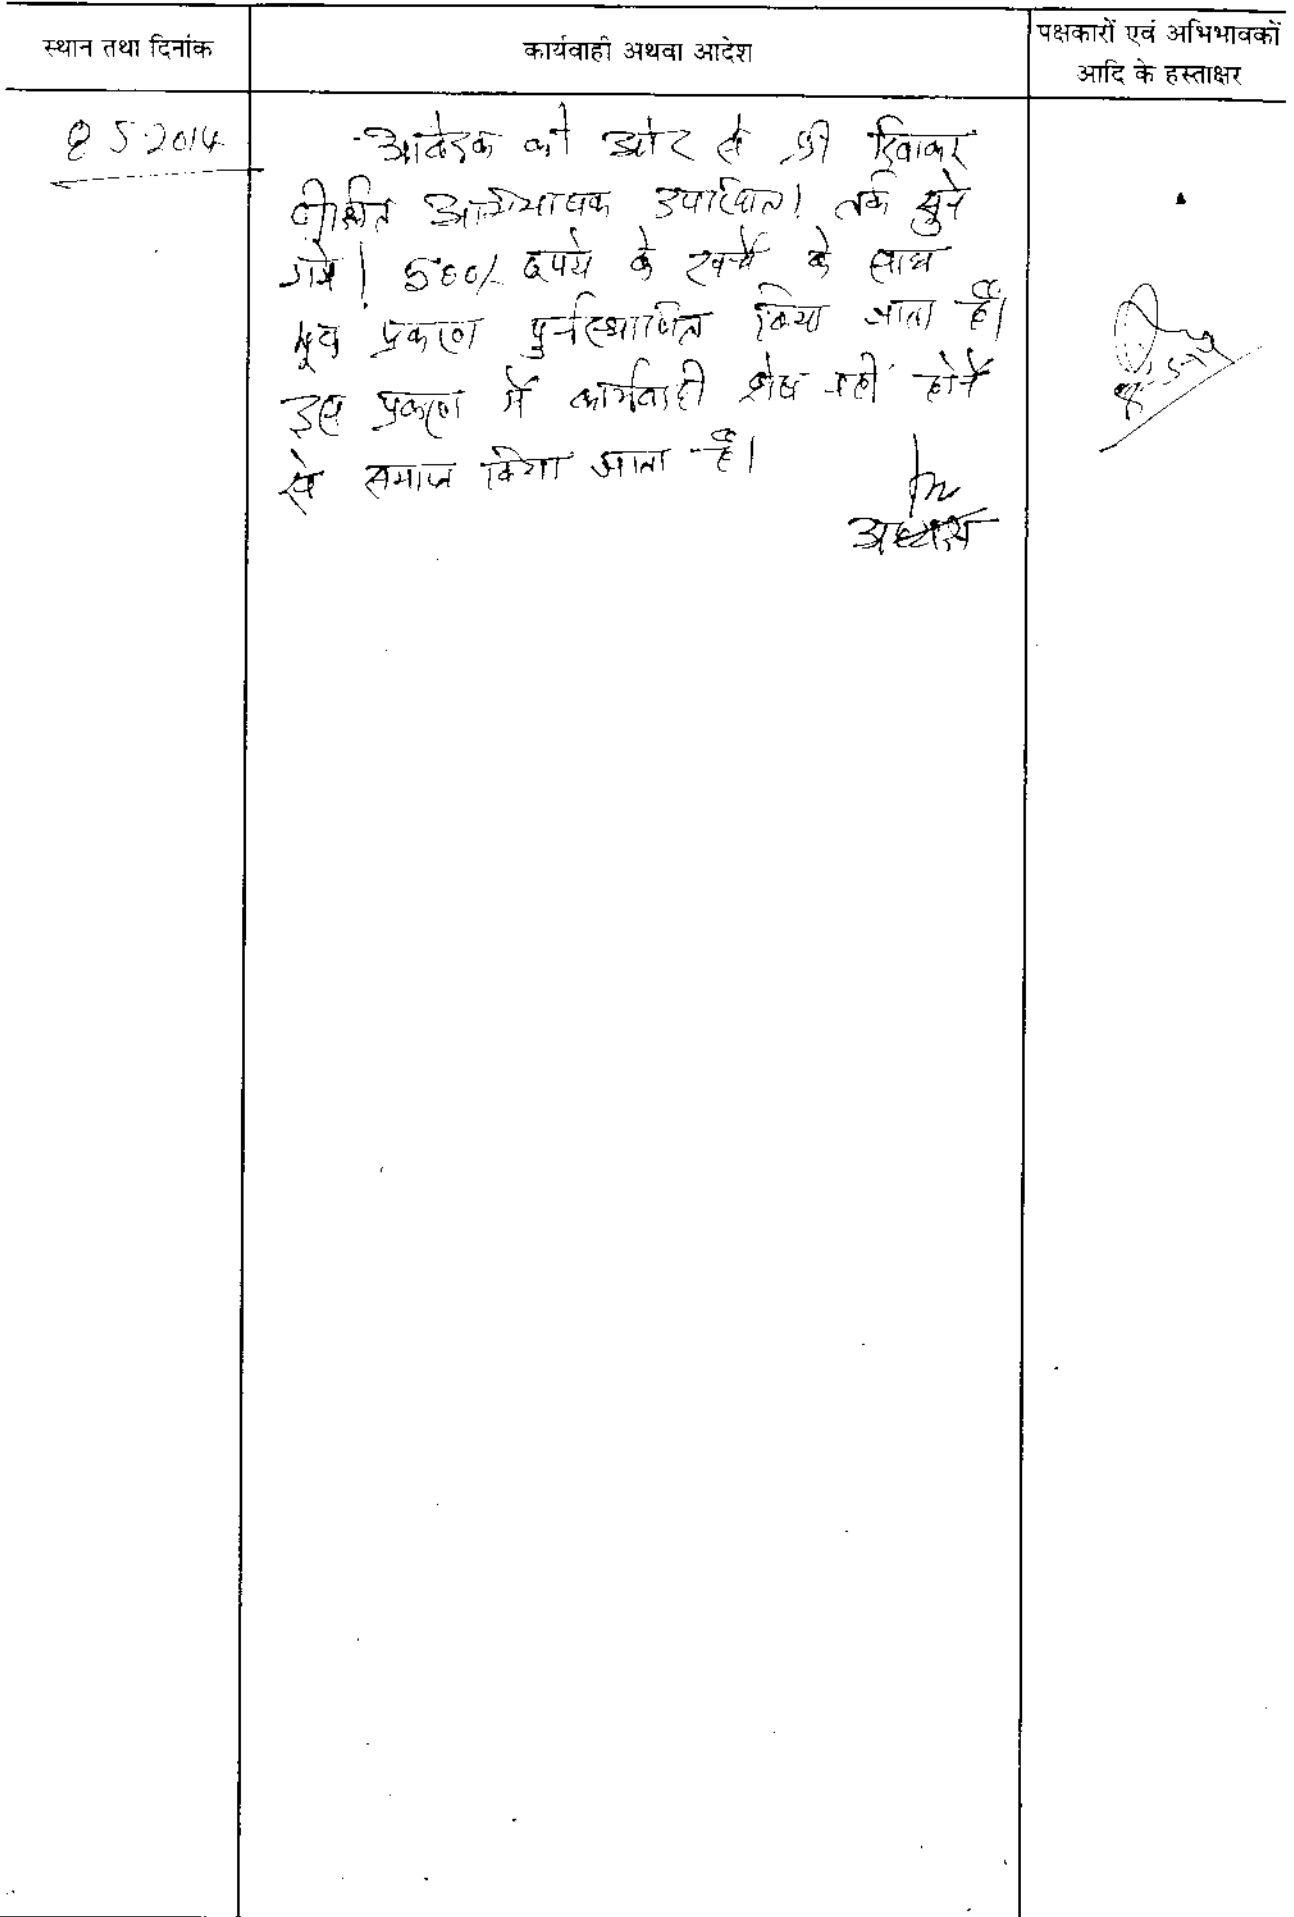 स्थान तथा दिनांक
कार्यवाही अथवा आदेश
पक्षकारों एवं अभिभावकों
आदि के हस्ताक्षर
8 5-2014
आवेदक की ओर से श्री दिवाकर
दीक्षित अभिभाषक उपस्थित। तर्क सुने
गये। 500/- रुपये के खर्चे के साथ
मूल प्रकरण पुर्नस्थापित किया जाता है।
इस प्रकरण में कार्यवाही शेष नहीं होने
से समाप्त किया जाता है।
अध्यक्ष
8-5-14